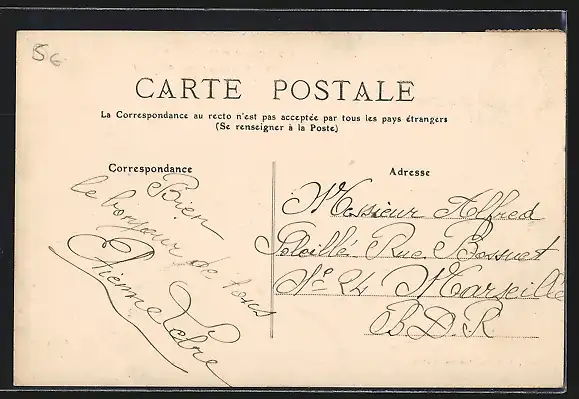 56
CARTE POSTALE
La Correspondance au recto n'est pas acceptée par tous les pays étrangers
(Se renseigner à la Poste)
Correspondance
Bien
le bonjour de tous
Etienne Febre
Adresse
Messieur Alfred
Poleillé Rue Bossuet
N° 24 Marseille
B.D.R.